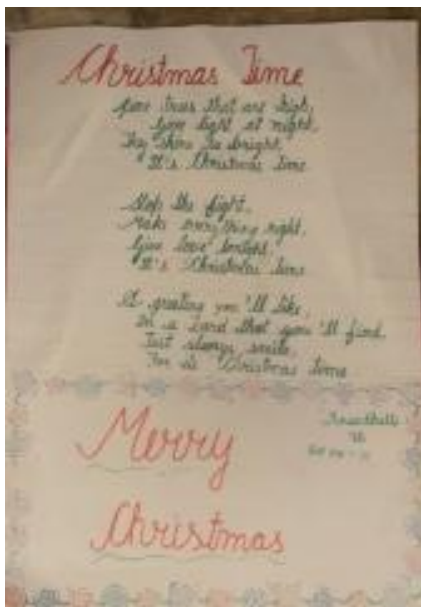 Christmas Time
Pine trees that are high,
Give light at night,
They shine so bright,
It's Christmas time
Stop the fight,
Make everything right,
Give love tonight,
It's Christmas time
A greeting you'll like,
In a card that you'll find
Just always smile,
For it's Christmas time
Merry
Christmas